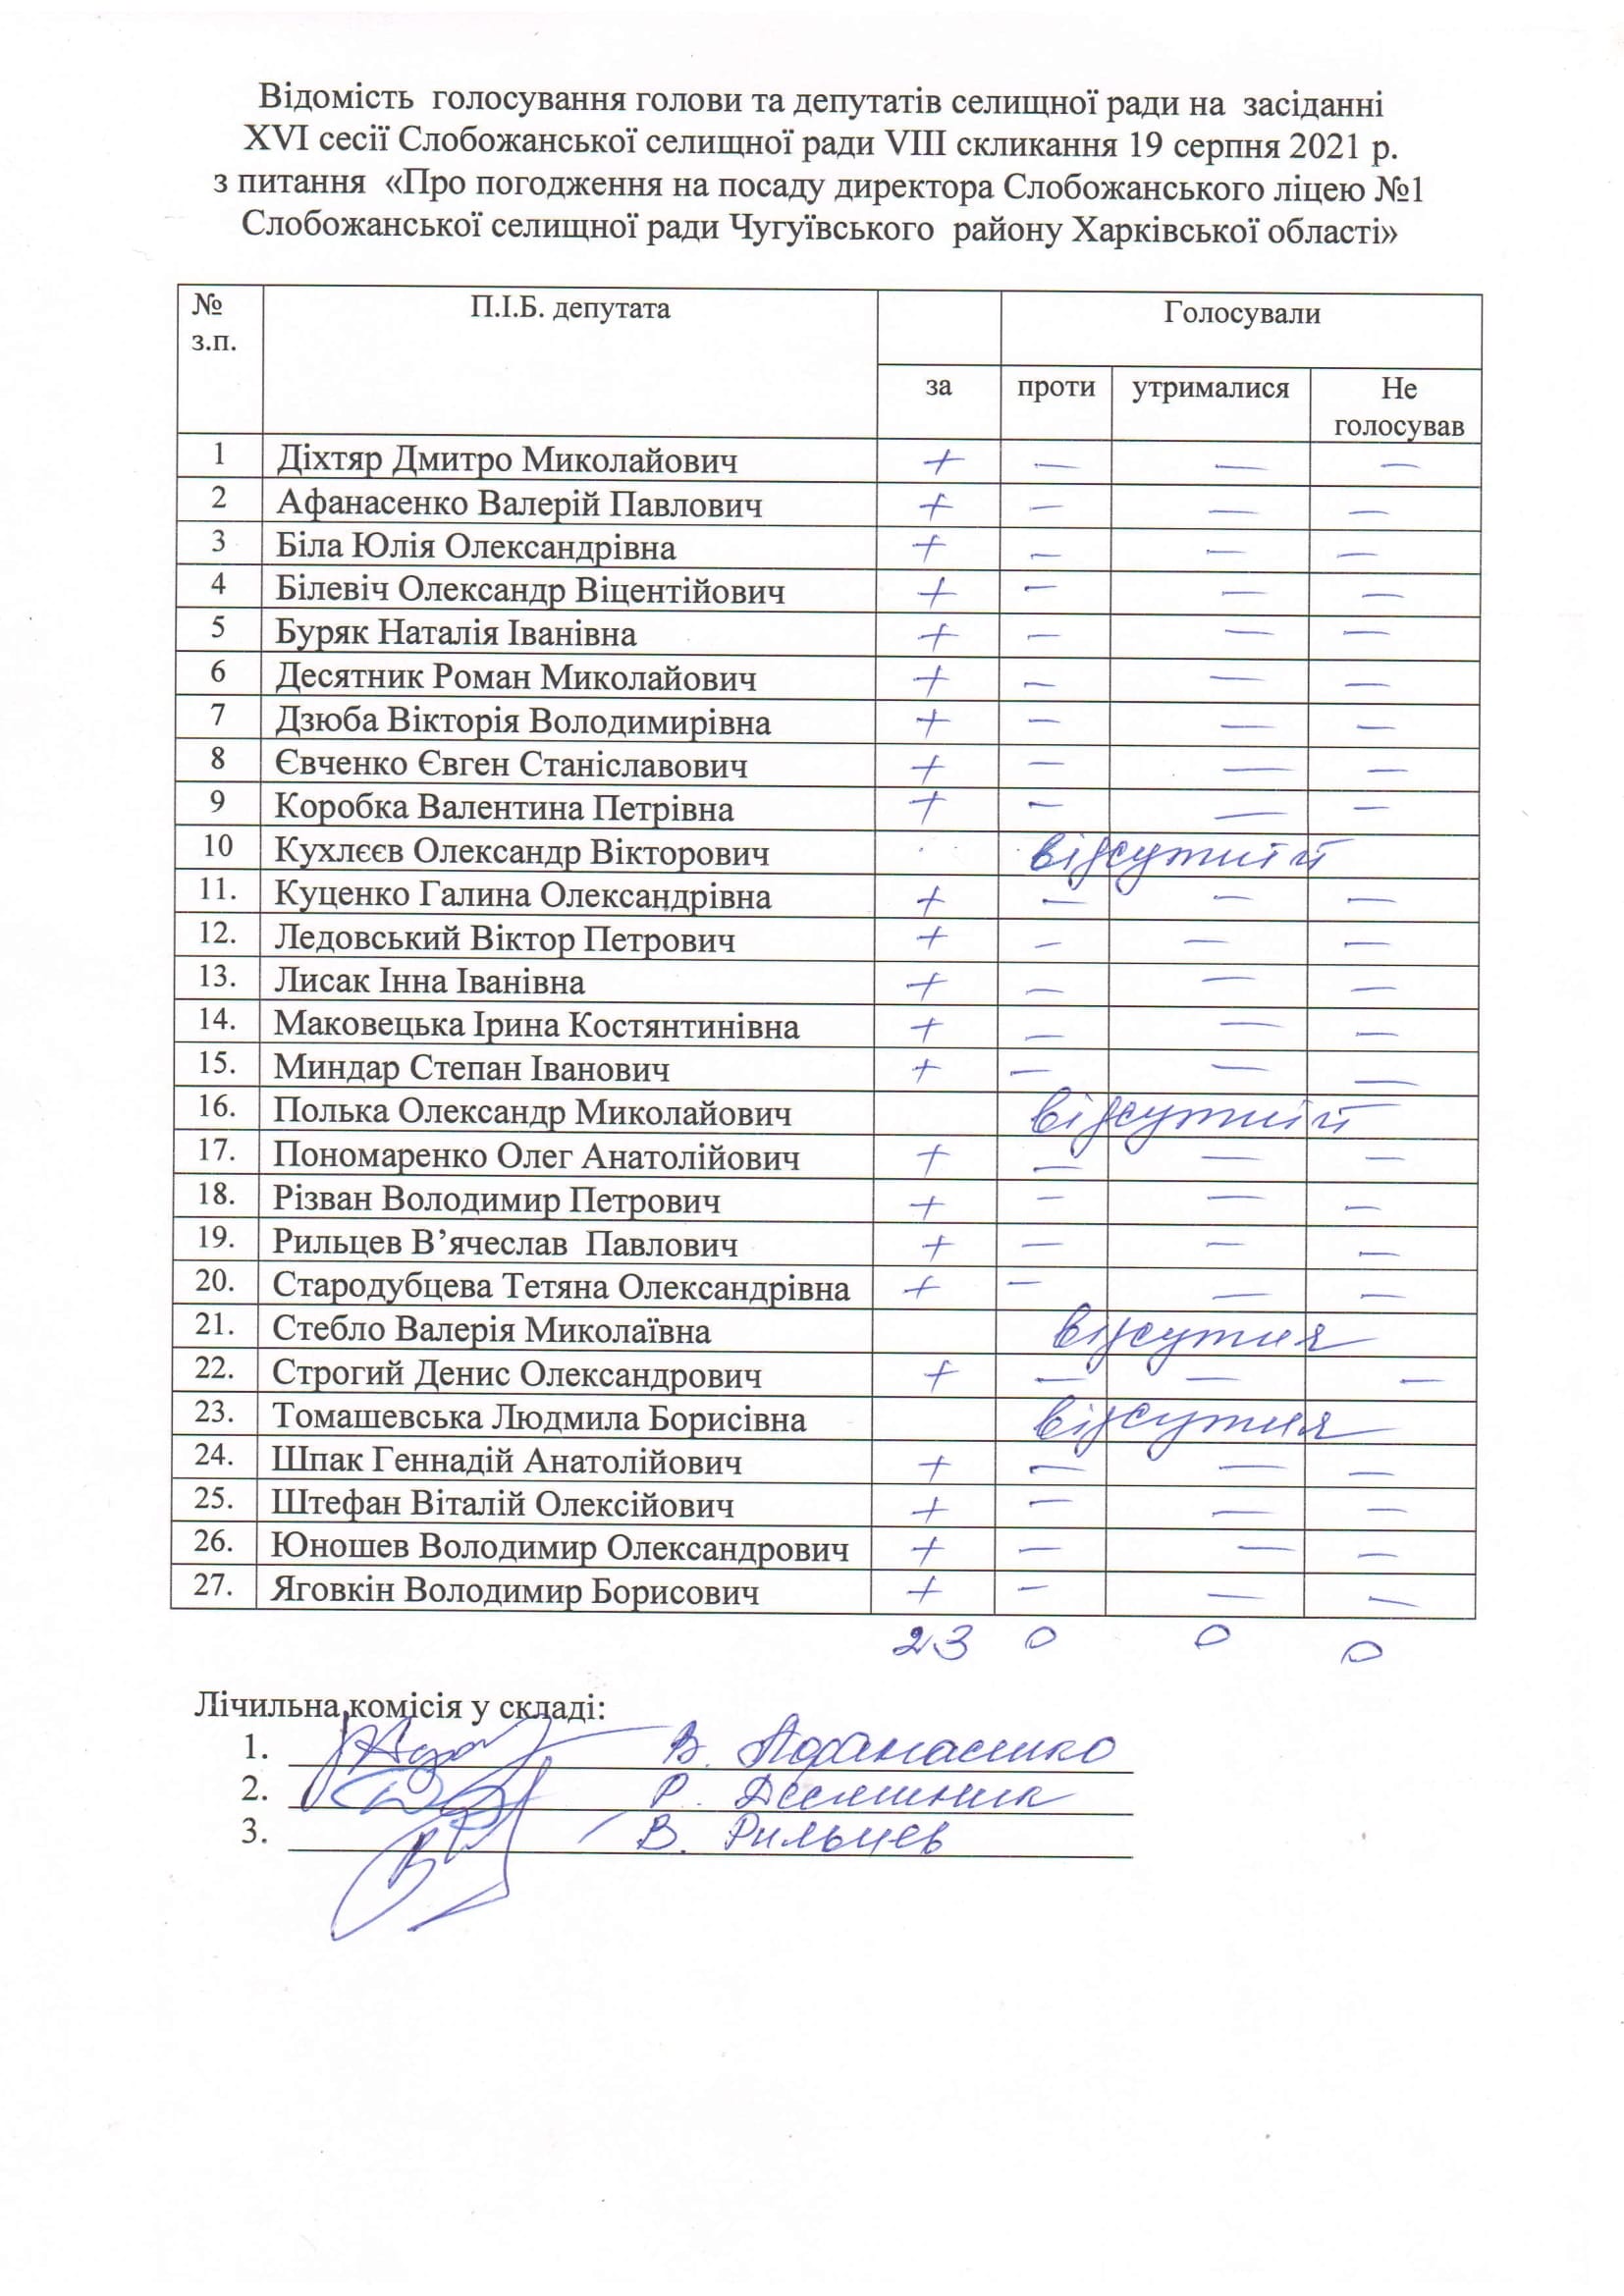 Відомість голосування голови та депутатів селищної ради на засіданні
XVI сесії Слобожанської селищної ради VIII скликання 19 серпня 2021 р.
з питання «Про погодження на посаду директора Слобожанського ліцею №1
Слобожанської селищної ради Чугуївського району Харківської області»
№ з.п. П.І.Б. депутата Голосували
за проти утрималися Не голосував
1 Діхтяр Дмитро Миколайович + — — —
2 Афанасенко Валерій Павлович + — — —
3 Біла Юлія Олександрівна + — — —
4 Білевіч Олександр Віцентійович + — — —
5 Буряк Наталія Іванівна + — — —
6 Десятник Роман Миколайович + — — —
7 Дзюба Вікторія Володимирівна + — — —
8 Євченко Євген Станіславович + — — —
9 Коробка Валентина Петрівна + — — —
10 Кухлєєв Олександр Вікторович відсутній
11. Куценко Галина Олександрівна + — — —
12. Ледовський Віктор Петрович + — — —
13. Лисак Інна Іванівна + — — —
14. Маковецька Ірина Костянтинівна + — — —
15. Миндар Степан Іванович + — — —
16. Полька Олександр Миколайович відсутній
17. Пономаренко Олег Анатолійович + — — —
18. Різван Володимир Петрович + — — —
19. Рильцев В’ячеслав Павлович + — — —
20. Стародубцева Тетяна Олександрівна + — — —
21. Стебло Валерія Миколаївна відсутня
22. Строгий Денис Олександрович + — — —
23. Томашевська Людмила Борисівна відсутня
24. Шпак Геннадій Анатолійович + — — —
25. Штефан Віталій Олексійович + — — —
26. Юношев Володимир Олександрович + — — —
27. Яговкін Володимир Борисович + — — —
23 0 0 0
Лічильна комісія у складі:
1. В. Афанасенко
2. Р. Десятник
3. В. Рильцев